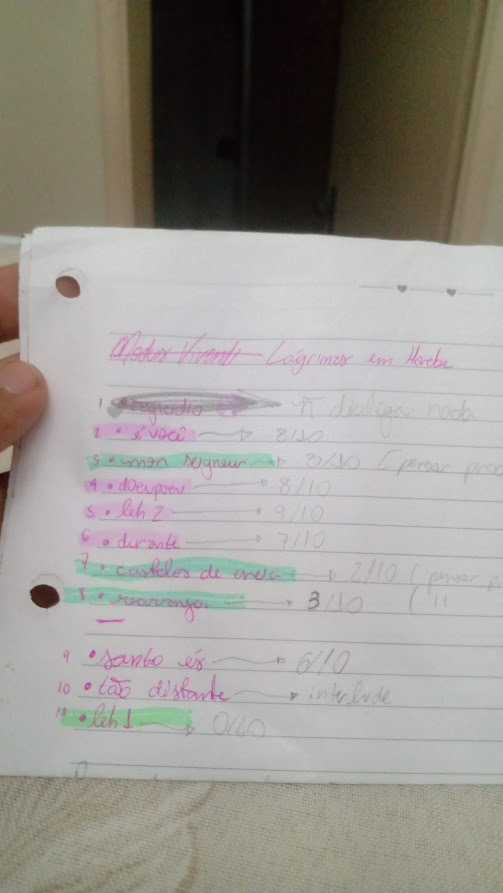 Modus Vivendi Lágrimas em Horebe
1 prelúdio → ñ dialoga nada
2 • é você → 8/10
3 • mon seigneur → 3/10 (pensar
4 • → 8/10
5 • leh 2 → 9/10
6 • durante → 7/10
7 • castelos de areia → 2/10 (pensar
8 • rearranjar → 3/10 ( 11
9 • santo és → 6/10
10 • tão distante → interlude
11 • leh 1 → 0/10